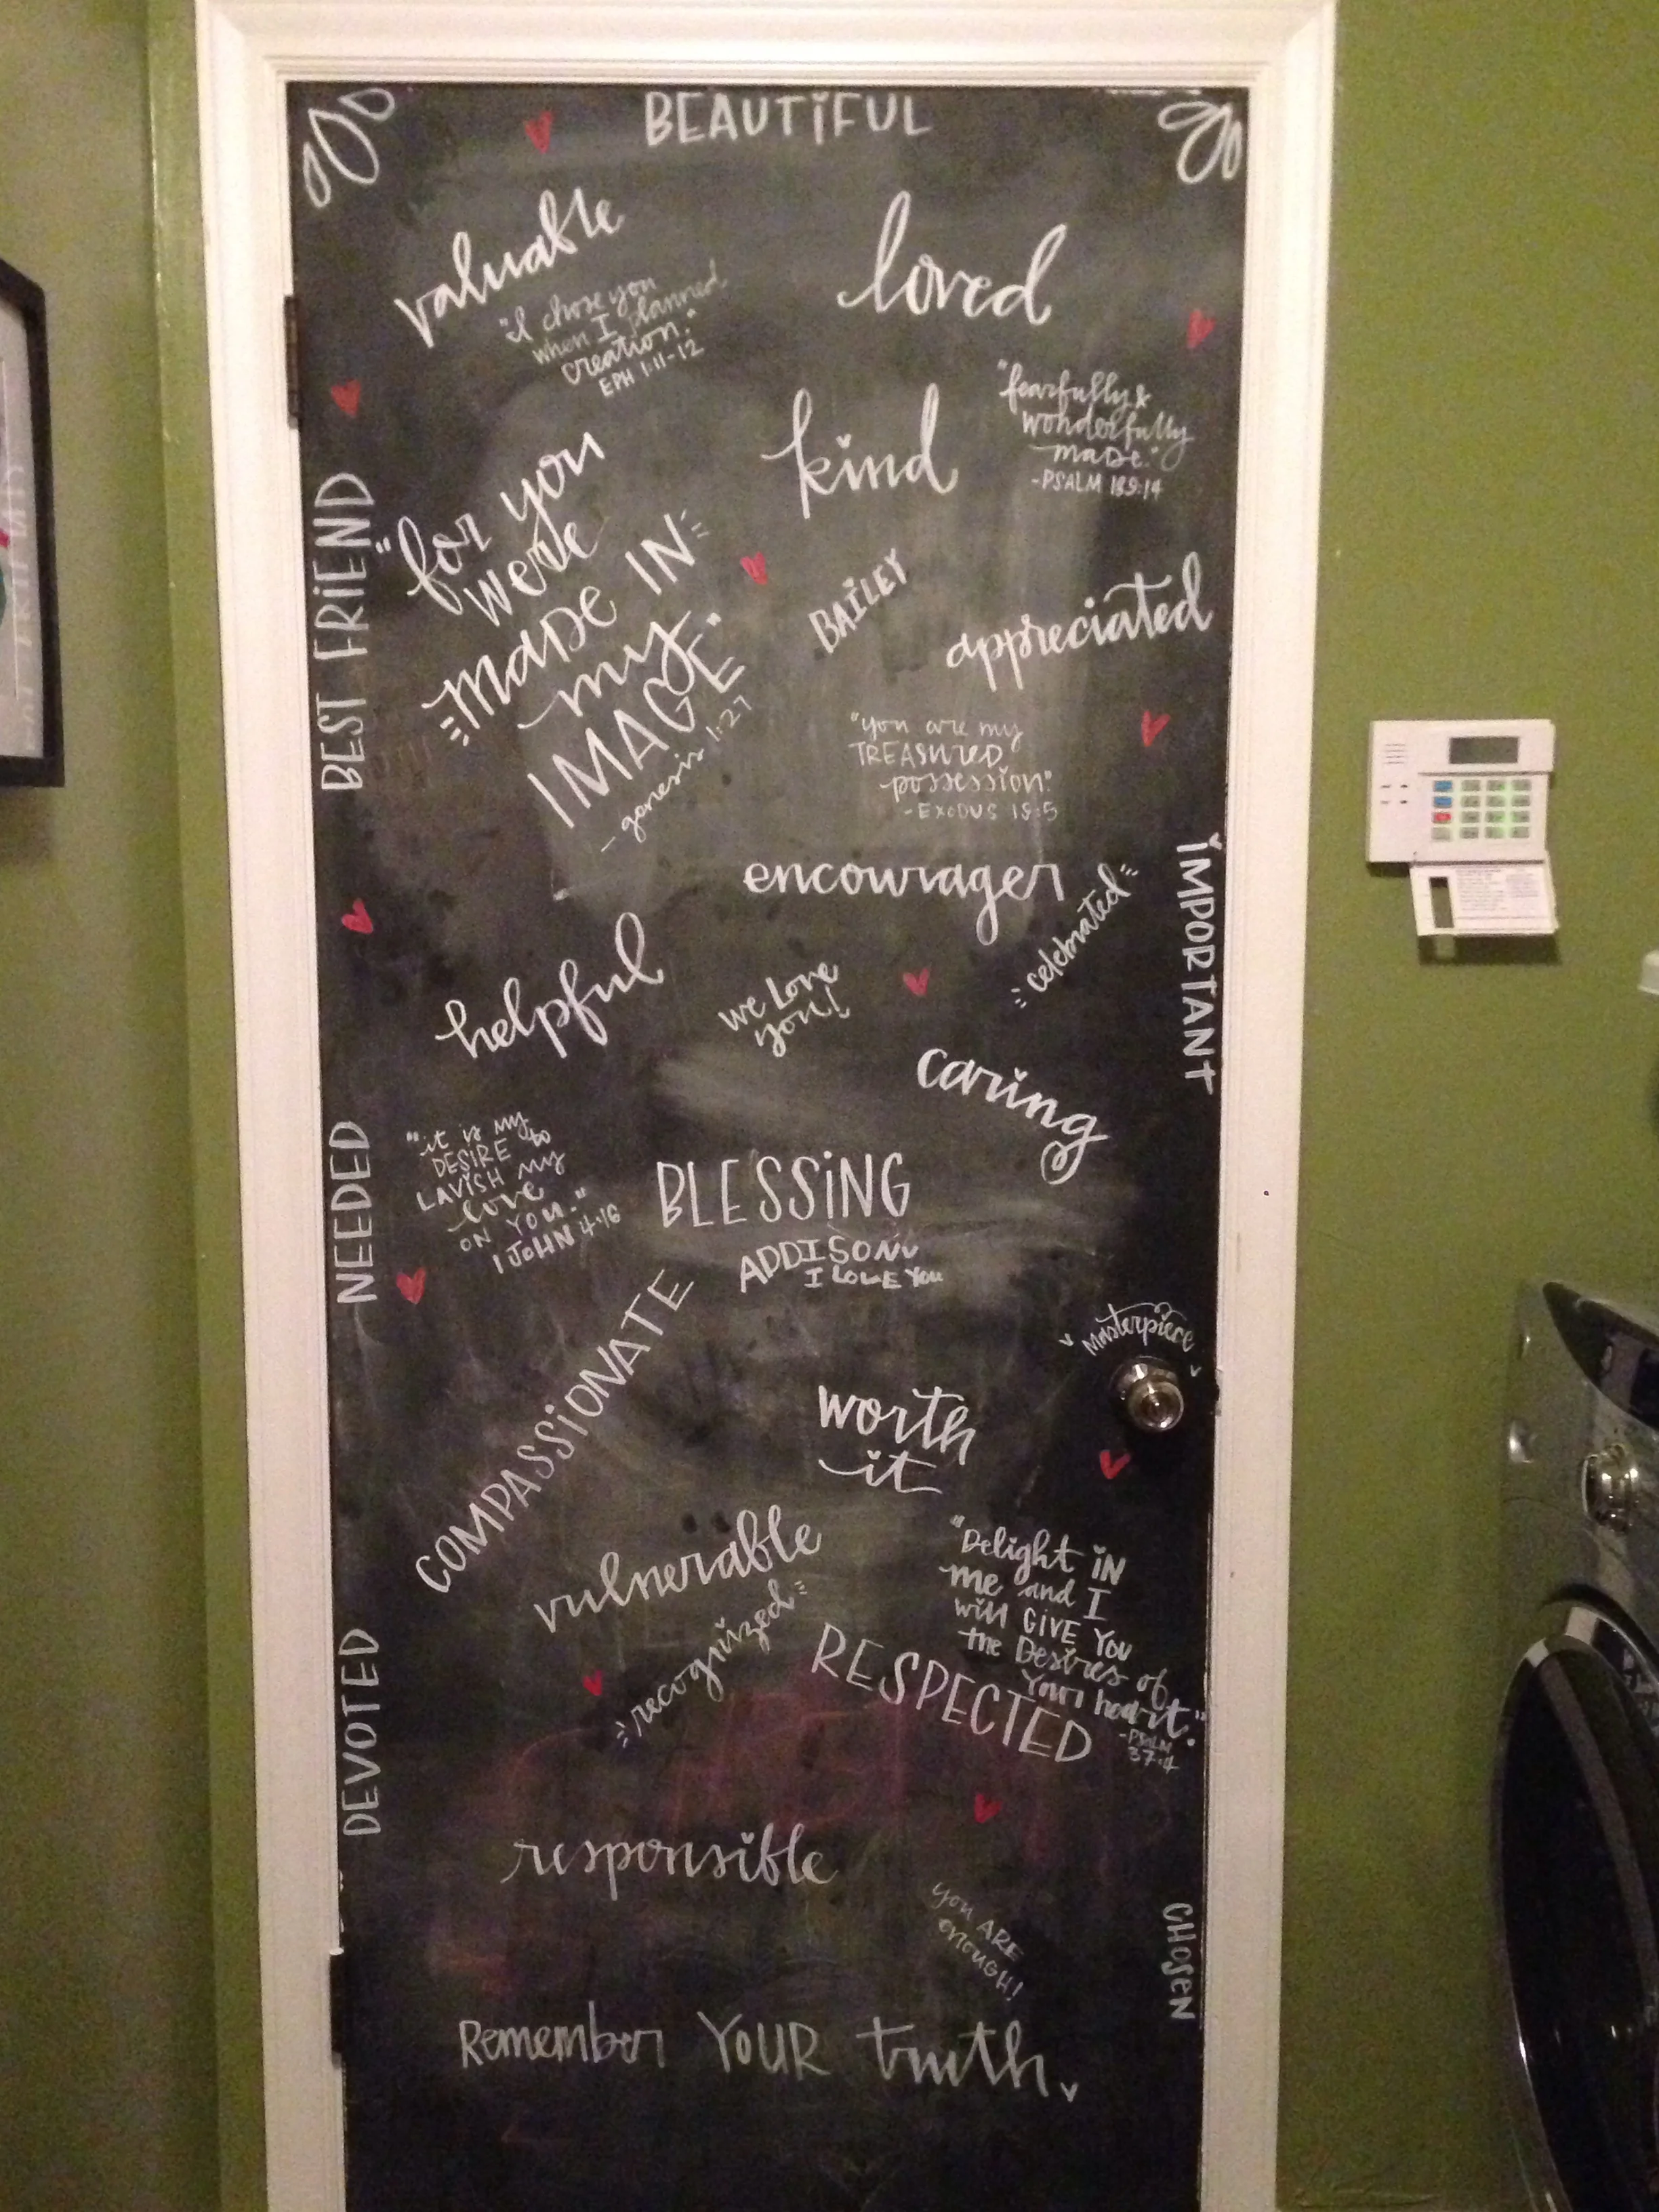 BEAUTIFUL
valuable
loved
"I chose you
when I planned
creation."
EPH 1:11-12
"fearfully &
wonderfully
made."
-PSALM 139:14
kind
BEST FRIEND
"for you
were
made IN
my
IMAGE"
- genesis 1:27
BAILEY
appreciated
"you are my
TREASURED
possession."
-EXODUS 19:5
encourager
celebrated
IMPORTANT
helpful
we Love
you!
caring
NEEDED
"it is my
DESIRE to
LAVISH my
love
ON YOU."
1 JOHN 4:16
BLESSING
ADDISON
I LOVE YOU
COMPASSIONATE
masterpiece
worth
it
vulnerable
recognized
"Delight IN
me and I
will GIVE YOU
the Desires of
Your heart."
-PSALM
37:4
RESPECTED
DEVOTED
responsible
you ARE
enough!
CHOSEN
Remember YOUR truth.